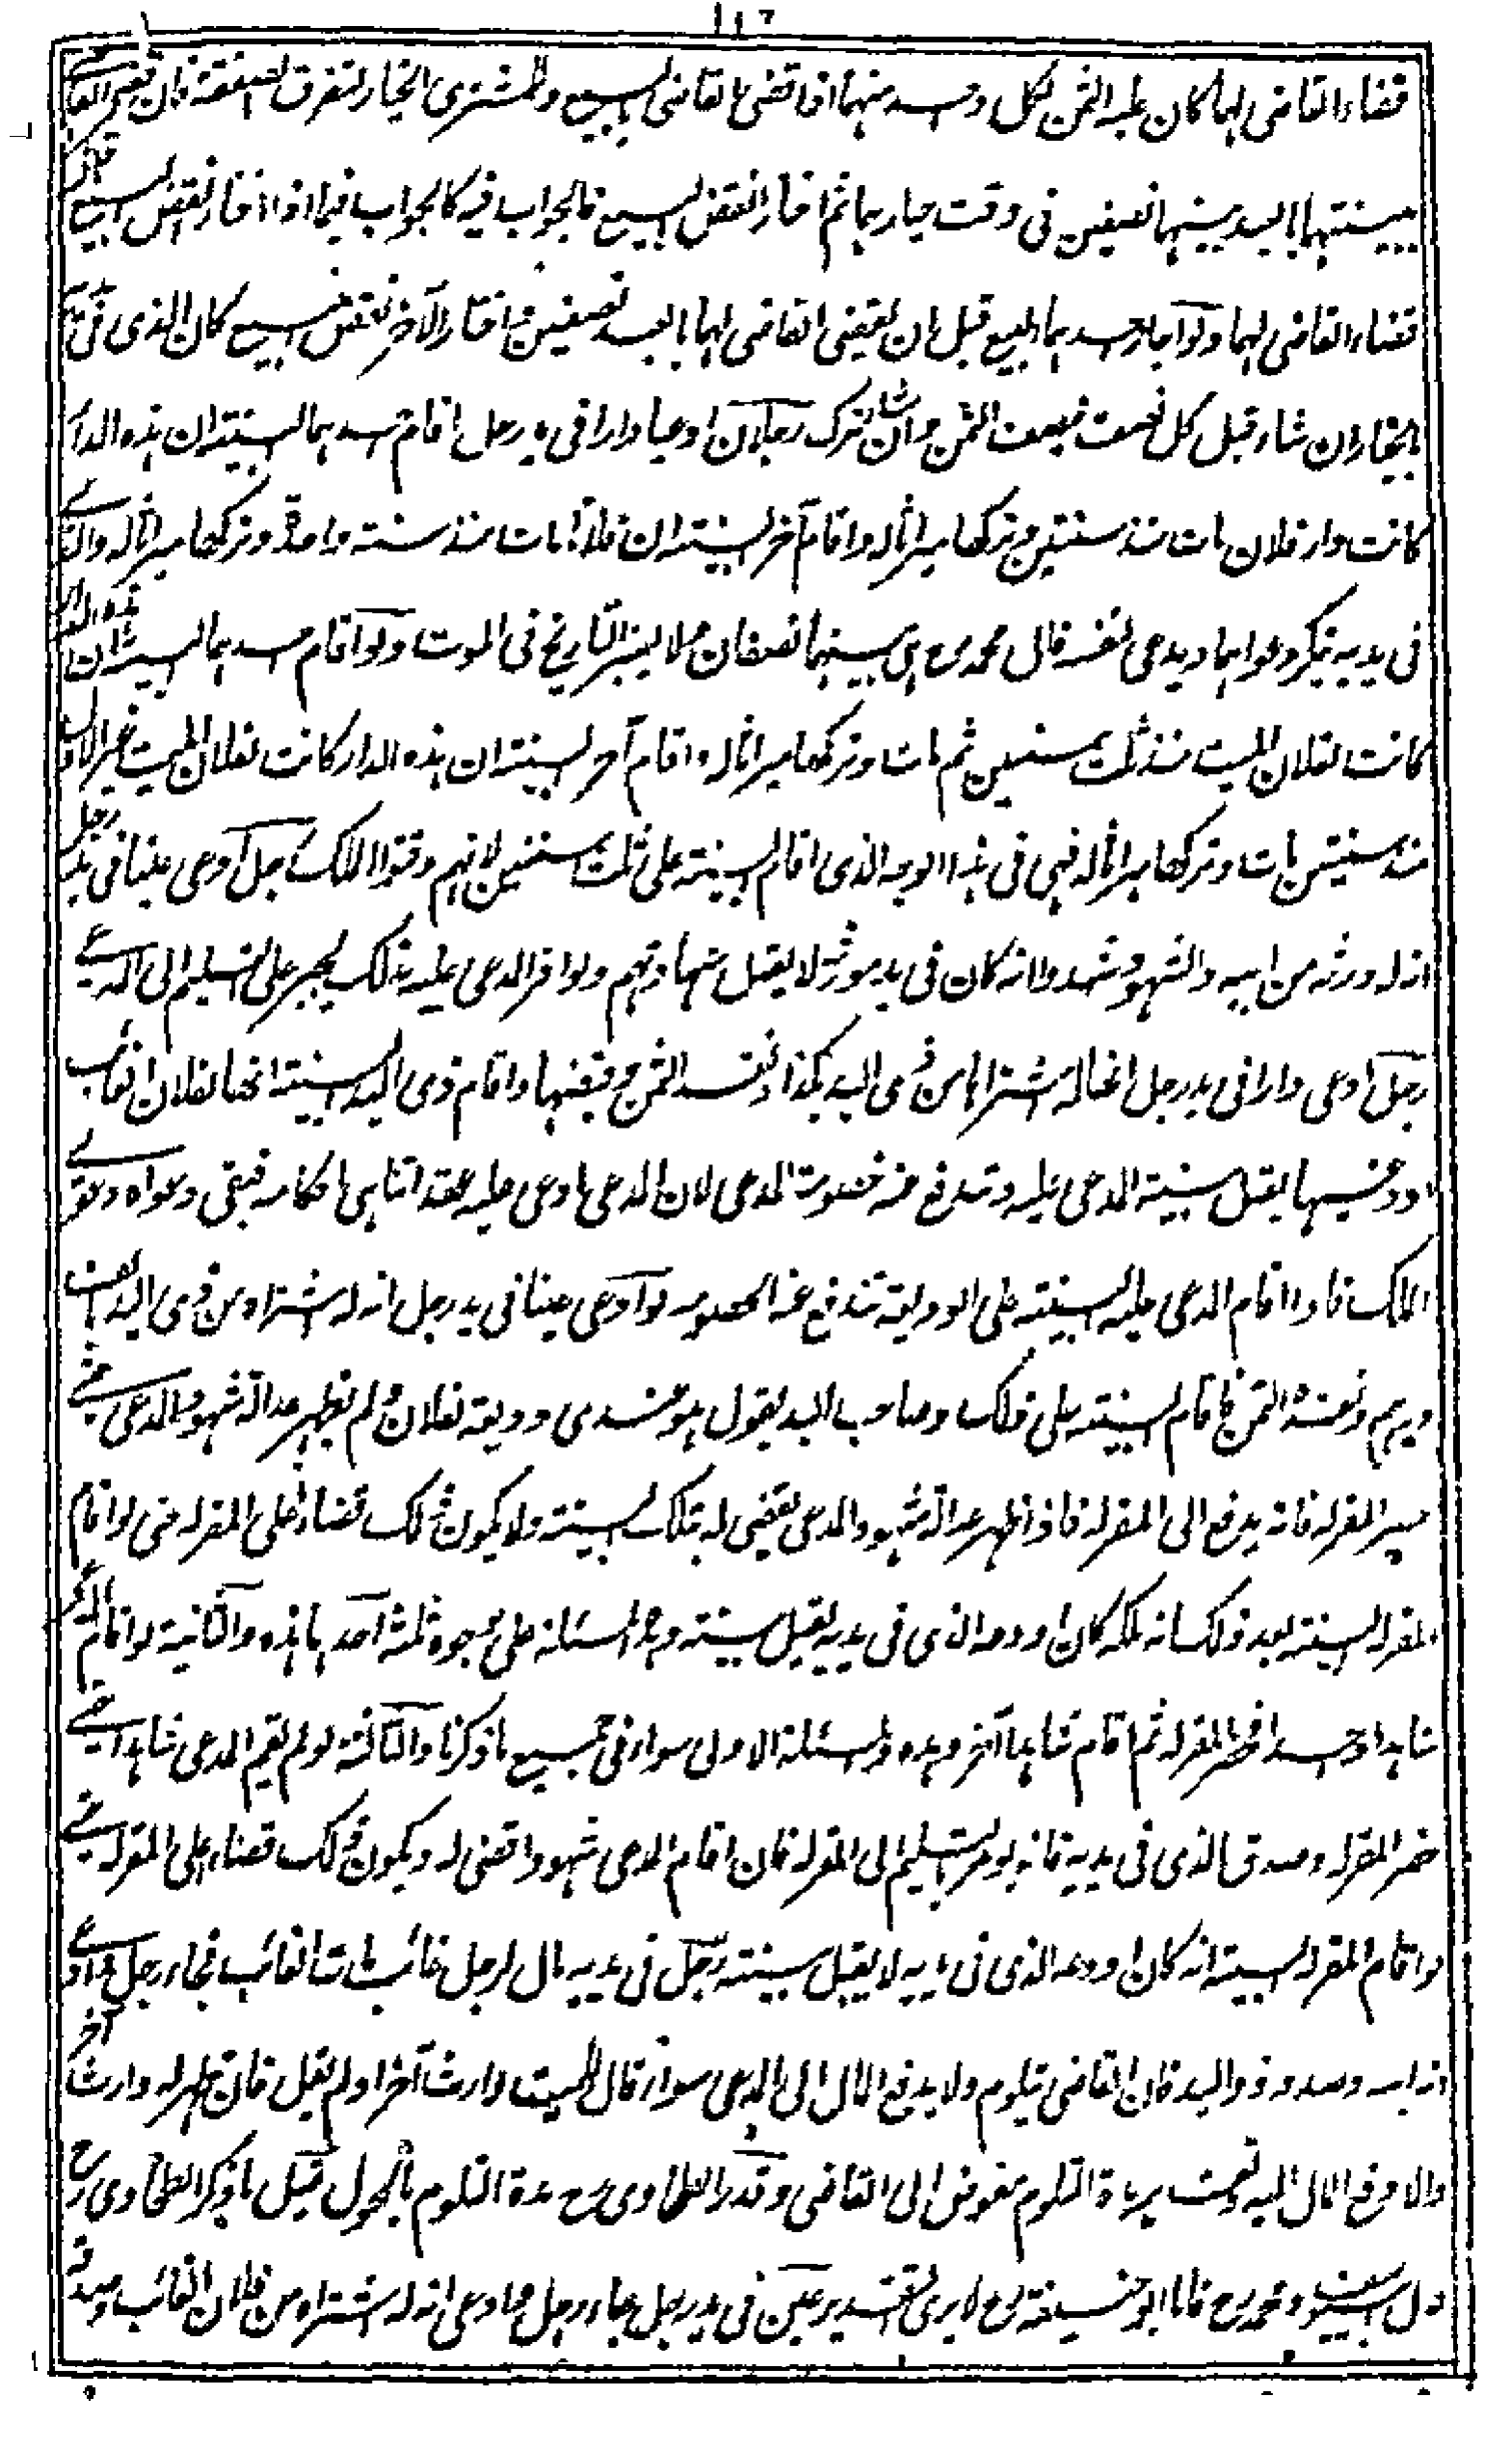 قضاء القاضى لهما كان عليه الثمن لكل واحد منهما اذا قضى القاضى بالبيع وللمشترى الخيار لتفرق الصفقة فان قضى القاضى
ببينتهما بالعبد بينهما نصفين فى وقت خيارهما ثم اختار انقض البيع فالجواب فيه كالجواب فيما اذا اختار نقض البيع قبل
قضاء القاضى لهما ولو اجاز احدهما البيع قبل ان يقضى القاضى لهما بالعبد نصفين واختار الآخر نقض البيع كان الذى فى يديه
بالخيار ان شاء قبل كل نصف بنصف الثمن وان شاء ترك رجلان ادعيا دارا فى يد رجل اقام احدهما البينة ان هذه الدار
كانت دار فلان مات منذ سنتين وتركها ميراثا له واقام آخر البينة ان فلانا مات منذ سنة واحدة وتركها ميراثا له والذى
فى يديه ينكر دعواهما ويدعى لنفسه قال محمد رح هى بينهما نصفان ولا يعتبر التاريخ فى الموت ولو اقام احدهما البينة ان هذه الدار
كانت لفلان الميت منذ ثلث سنين ثم مات وتركها ميراثا له واقام آخر البينة ان هذه الدار كانت لفلان الميت غير الاول
منذ سنتين مات وتركها ميراثا له فهى فى هذا الوجه الذى اقام البينة على ثلث سنين لانهم وقتوا الملك رجل ادعى عينا فى يد رجل
انه له ورثه من ابيه والشهود شهدوا انه كان فى يد مورثه لا يقبل شهادتهم ولو اقر المدعى عليه بذلك يجبر على التسليم الى المدعى
رجل ادعى دارا فى يد رجل انها له اشتراها من ذى اليد بكذا ونقد الثمن وقبضها واقام ذى اليد البينة انها لفلان الغائب
اودعنيها يقبل بينة المدعى عليه وتندفع عنه خصومة المدعى لان المدعى ما ادعى عليه عقدا تناهى باحكامه فبقى دعواه دعوى
الملك فاذا اقام المدعى عليه البينة على الوديعة تندفع عنه الخصومة لو ادعى عينا فى يد رجل انه له اشتراه من ذى اليد بالف
درهم ونقده الثمن فاقام البينة على ذلك وصاحب اليد يقول هو عندى وديعة لفلان ولم يظهر عدالة شهود المدعى حتى
حضر المقر له فانه يدفع الى المقر له فاذا ظهر عدالة شهود المدعى يقضى له بتلك البينة ولا يكون ذلك قضاء على المقر له حتى لو اقام
المقر له البينة بعد ذلك انه ملكه كان اودعه الذى فى يديه يقبل بينته وهذا المسئلة على وجوه ثلثة احدها هذه والثانية لو اقام المدعى
شاهدا واحدا فحضر المقر له ثم اقام شاهدا آخر وهذه والمسئلة الاولى سواء فى جميع ما ذكرنا والثالثة لو لم يقم المدعى شاهدا حتى
حضر المقر له وصدق الذى فى يديه فانه يؤمر بالتسليم الى المقر له فان اقام المدعى شهودا قضى له ويكون ذلك قضاء على المقر له حتى
لو اقام المقر له البينة انه كان اودعه الذى فى يديه لا يقبل بينته رجل فى يديه مال لرجل غائب مات الغائب فجاء رجل وادعى
انه ابنه وصدقه ذو اليد فان القاضى يتلوم ولا يدفع المال الى المدعى سواء قال للميت وارث آخر او لم يقل فان ظهر له وارث آخر
والا دفع المال اليه مدة التلوم مفوض الى القاضى وقدر الطحاوى رح مدة التلوم بالحول قيل ما ذكر الطحاوى رح
ابو يوسف ومحمد رح فاما ابو حنيفة رح لا يرى التقدير عين فى يد رجل جاء رجل وادعى انه له اشتراه من فلان الغائب وصدقه